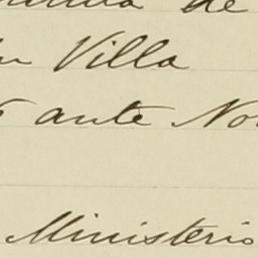 de
Villa
ante No
Ministerio